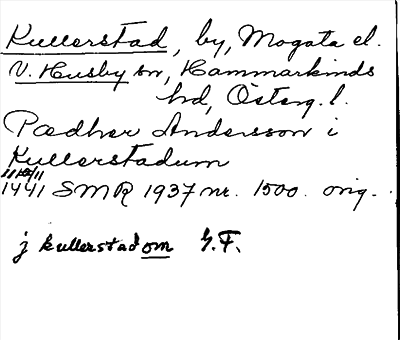 Kullerstad, by, Mogata el.
V. Husby sn, Hammarkinds
hd, Österg. l.
Pædher Andersson i
Kullerstadum
1441 SMR 1937 nr. 1500. orig.
j kullerstadom G.F.